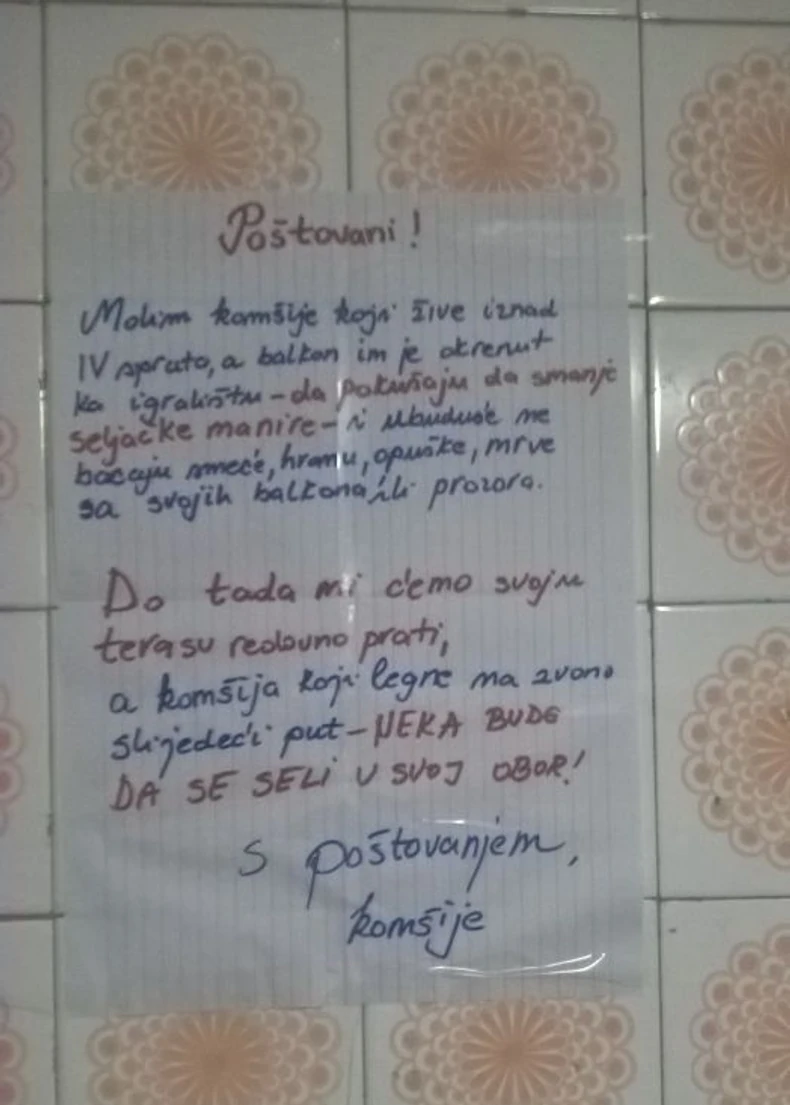 Poštovani!
Molim komšije koji žive iznad
IV sprata, a balkon im je okrenut
ka igralištu - da pokušaju da smanje
seljačke manire - i ubuduće ne
bacaju smeće, hranu, opuške, mrve
sa svojih balkona ili prozora.
Do tada mi ćemo svoju
terasu redovno prati,
a komšija koji legne na zvono
slijedeći put - NEKA BUDE
DA SE SELI U SVOJ OBOR!
S poštovanjem,
komšije